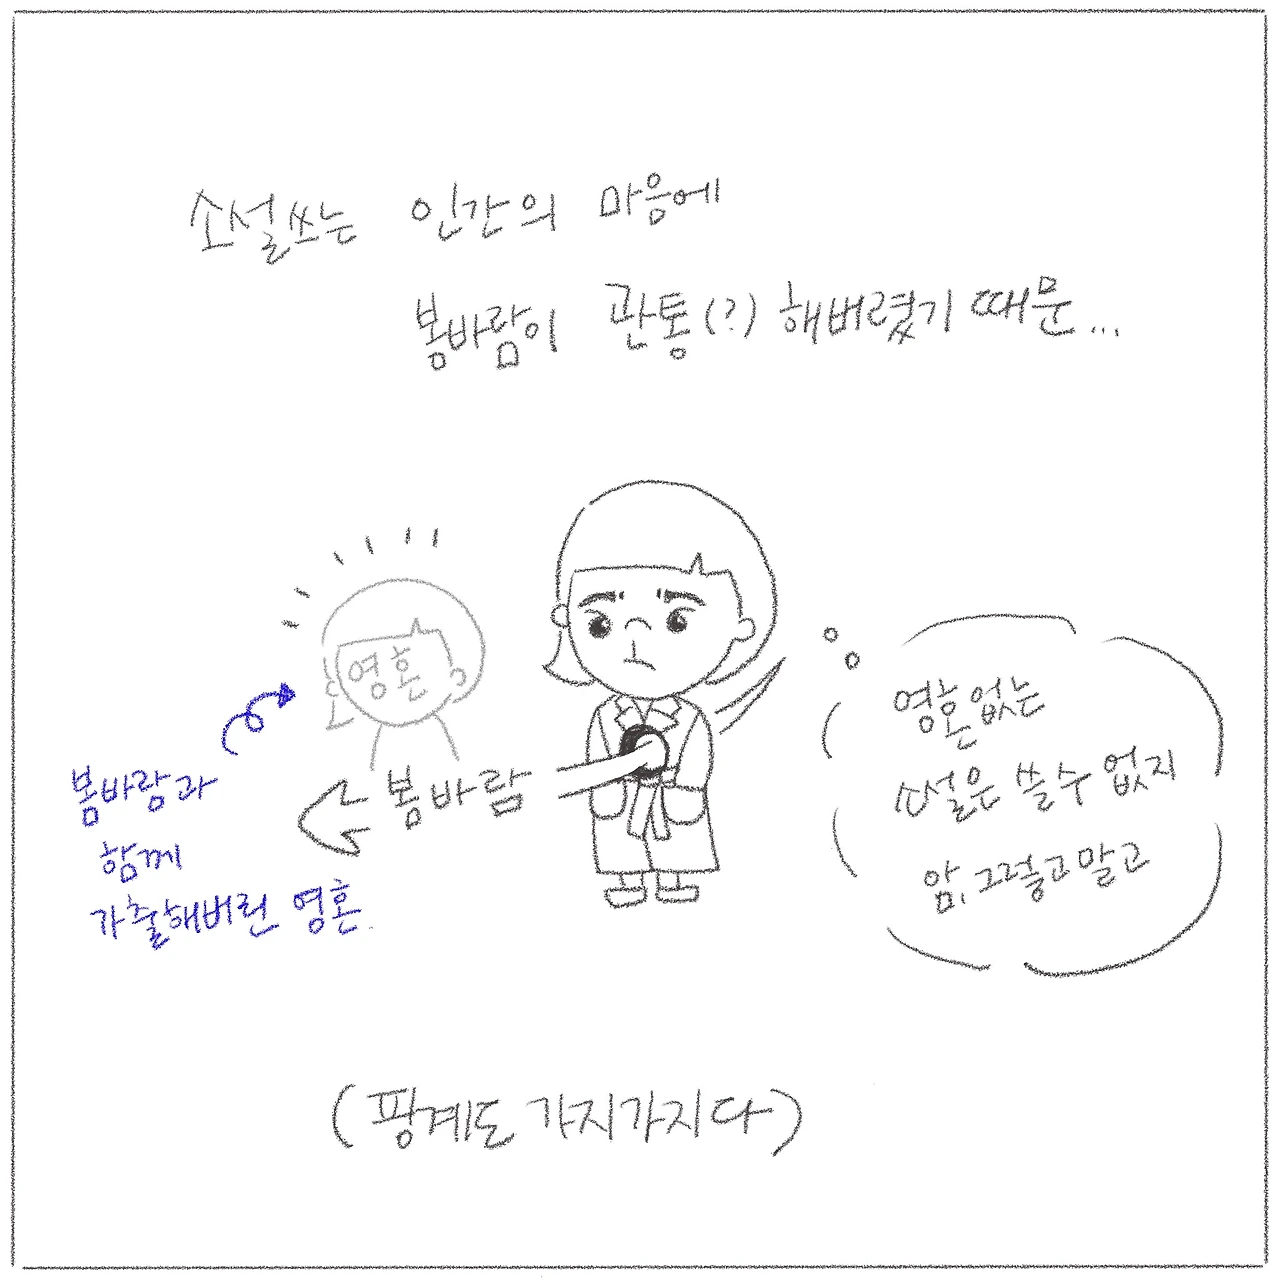 소설쓰는 인간의 마음에
봄바람이 관통(?)해버렸기 때문...
영혼
봄바람
봄바람과
함께
가출해버린 영혼.
영혼없는
소설은 쓸 수 없지
암, 그렇고 말고
(핑계도 가지가지다)